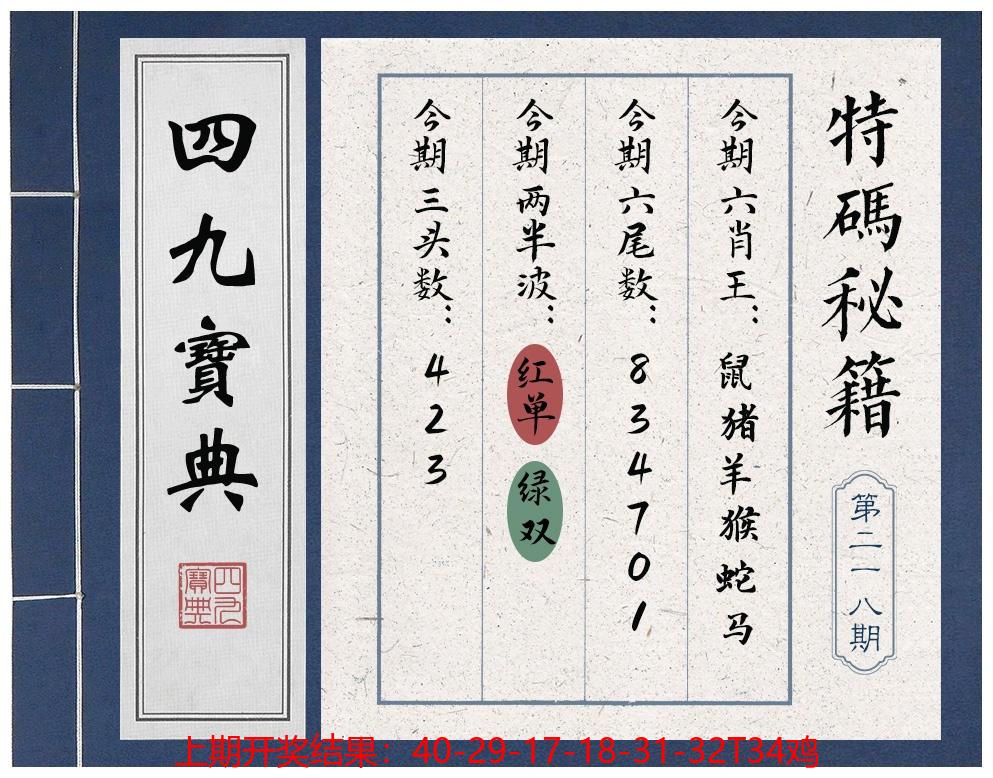 特碼秘籍
第二一八期
今期六肖王：鼠猪羊猴蛇马
今期六尾数：834701
今期两半波：红单 绿双
今期三头数：423
四九寶典
四九寶典
上期开奖结果：40-29-17-18-31-32T34鸡